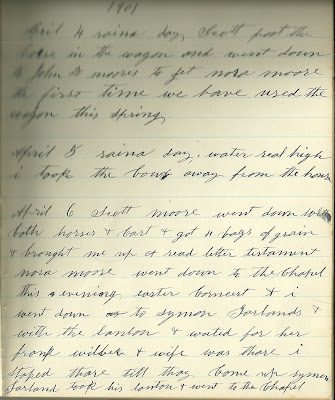 1901
April 4 raina day, Scott poot the
horse in the wagon and went down
to John H moores to get nora moore
the first time we have used the
wagon this spring
April 5 raina day. water real high
i took the bows away from the hous
April 6 Scott moore went down with
both horses & cart & got 4 bags of grain
& brought me up a read letter testament
nora moore went down to the Chapel
this evening easter Concert & i
went down to symon Sarlands &
with the lanton & wated for her
frank wilber & wife was thare i
stoped thare till thay Come up symon
Sarland took his lanton & went to the Chapel